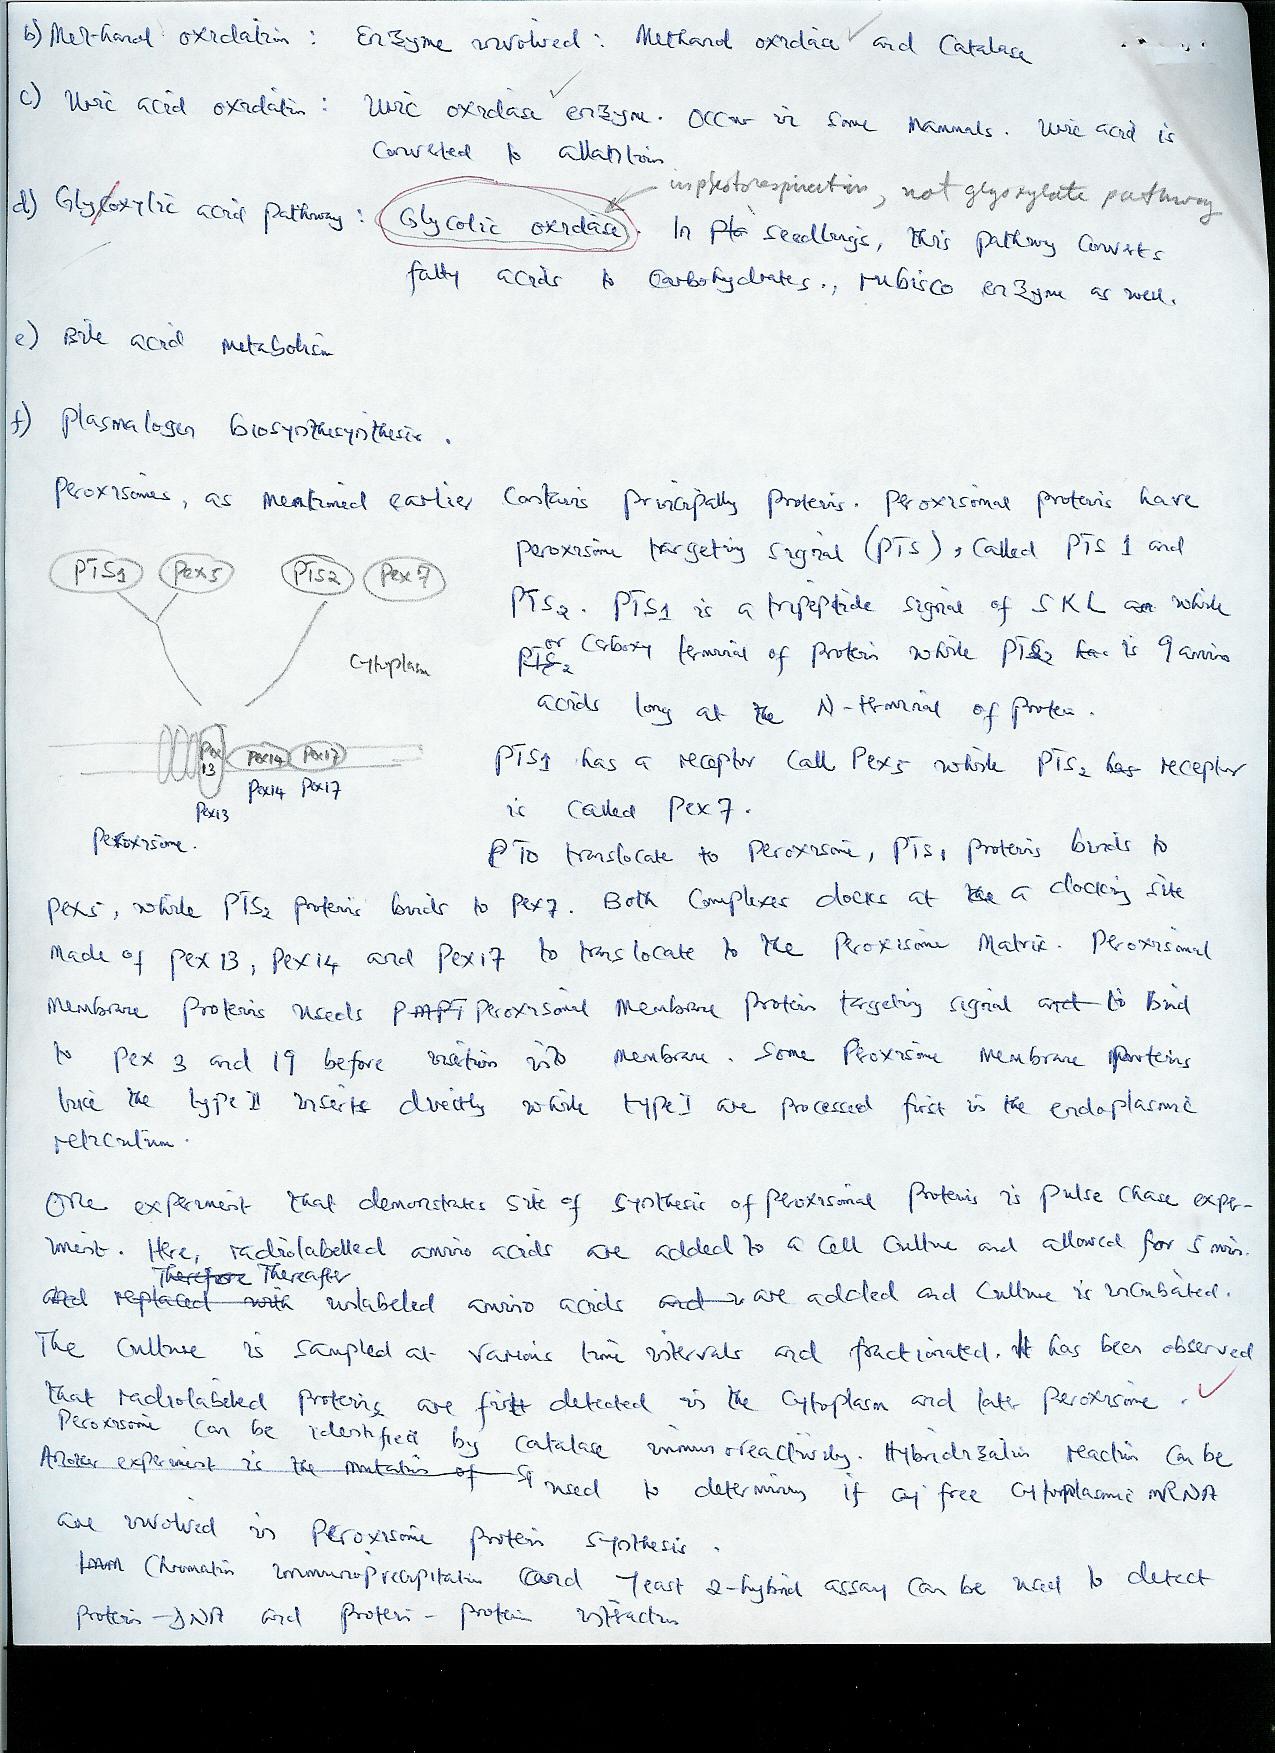 b) Methanol oxidation : Enzyme involved : Methanol oxidase and Catalase
c) Uric acid oxidation : Uric oxidase enzyme. Occur in some mammals. Uric acid is
converted to allantoin
in photorespiration, not glyoxylate pathway
d) Glyoxylic acid pathway : Glycolic oxidase. In seedlings, this pathway converts
fatty acids to carbohydrates., rubisco enzyme as well.
e) Bile acid metabolism
f) Plasmalogen biosynthesynthesis.
Peroxisomes, as mentioned earlier contains principally proteins. Peroxisomal proteins have
peroxisome targeting signal (PTS), called PTS 1 and
PTS2. PTS1 is a tripeptide signal of SKL while
or carboxy terminal of protein while PTS2 is 9 amino
acids long at the N-terminal of protein.
PTS1 has a receptor call Pex5 while PTS2 receptor
is called Pex7.
To translocate to peroxisome, PTS1 proteins binds to
PTS1 Pex5 PTS2 Pex7
Cytoplasm
Pex 13 Pex14 Pex17
Pex13 Pex14 Pex17
Peroxisome.
Pex5, while PTS2 proteins binds to Pex7. Both complexes docks at the a docking site
made of Pex 13, Pex 14 and Pex 17 to translocate to the Peroxisome Matrix. Peroxisomal
membrane proteins needs PMPT Peroxisomal membrane protein targeting signal and to bind
to Pex 3 and 19 before insertion into membrane. Some Peroxisome membrane proteins
like the type II inserts directly while type I are processed first in the endoplasmic
reticulum.
One experiment that demonstrates site of synthesis of peroxisomal proteins is pulse chase exper-
iment. Here, radiolabelled amino acids are added to a cell culture and allowed for 5 min.
Therefore Thereafter
and replaced with unlabeled amino acids and are added and culture is incubated.
The culture is sampled at various time intervals and fractionated. It has been observed
that radiolabeled proteins are first detected in the cytoplasm and later peroxisome.
Peroxisome can be identified by catalase immunoreactivity. Hybridization reaction can be
Another experiment is the mutation of used to determine if free cytoplasmic mRNA
are involved in peroxisome protein synthesis.
Chromatin immunoprecipitation and yeast 2-hybrid assay can be used to detect
protein-DNA and protein-protein interaction